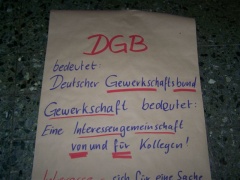 DGB
bedeutet:
Deutscher Gewerkschaftsbund
Gewerkschaft bedeutet:
Eine Interessengemeinschaft
von und für Kollegen!
sich für eine Sache